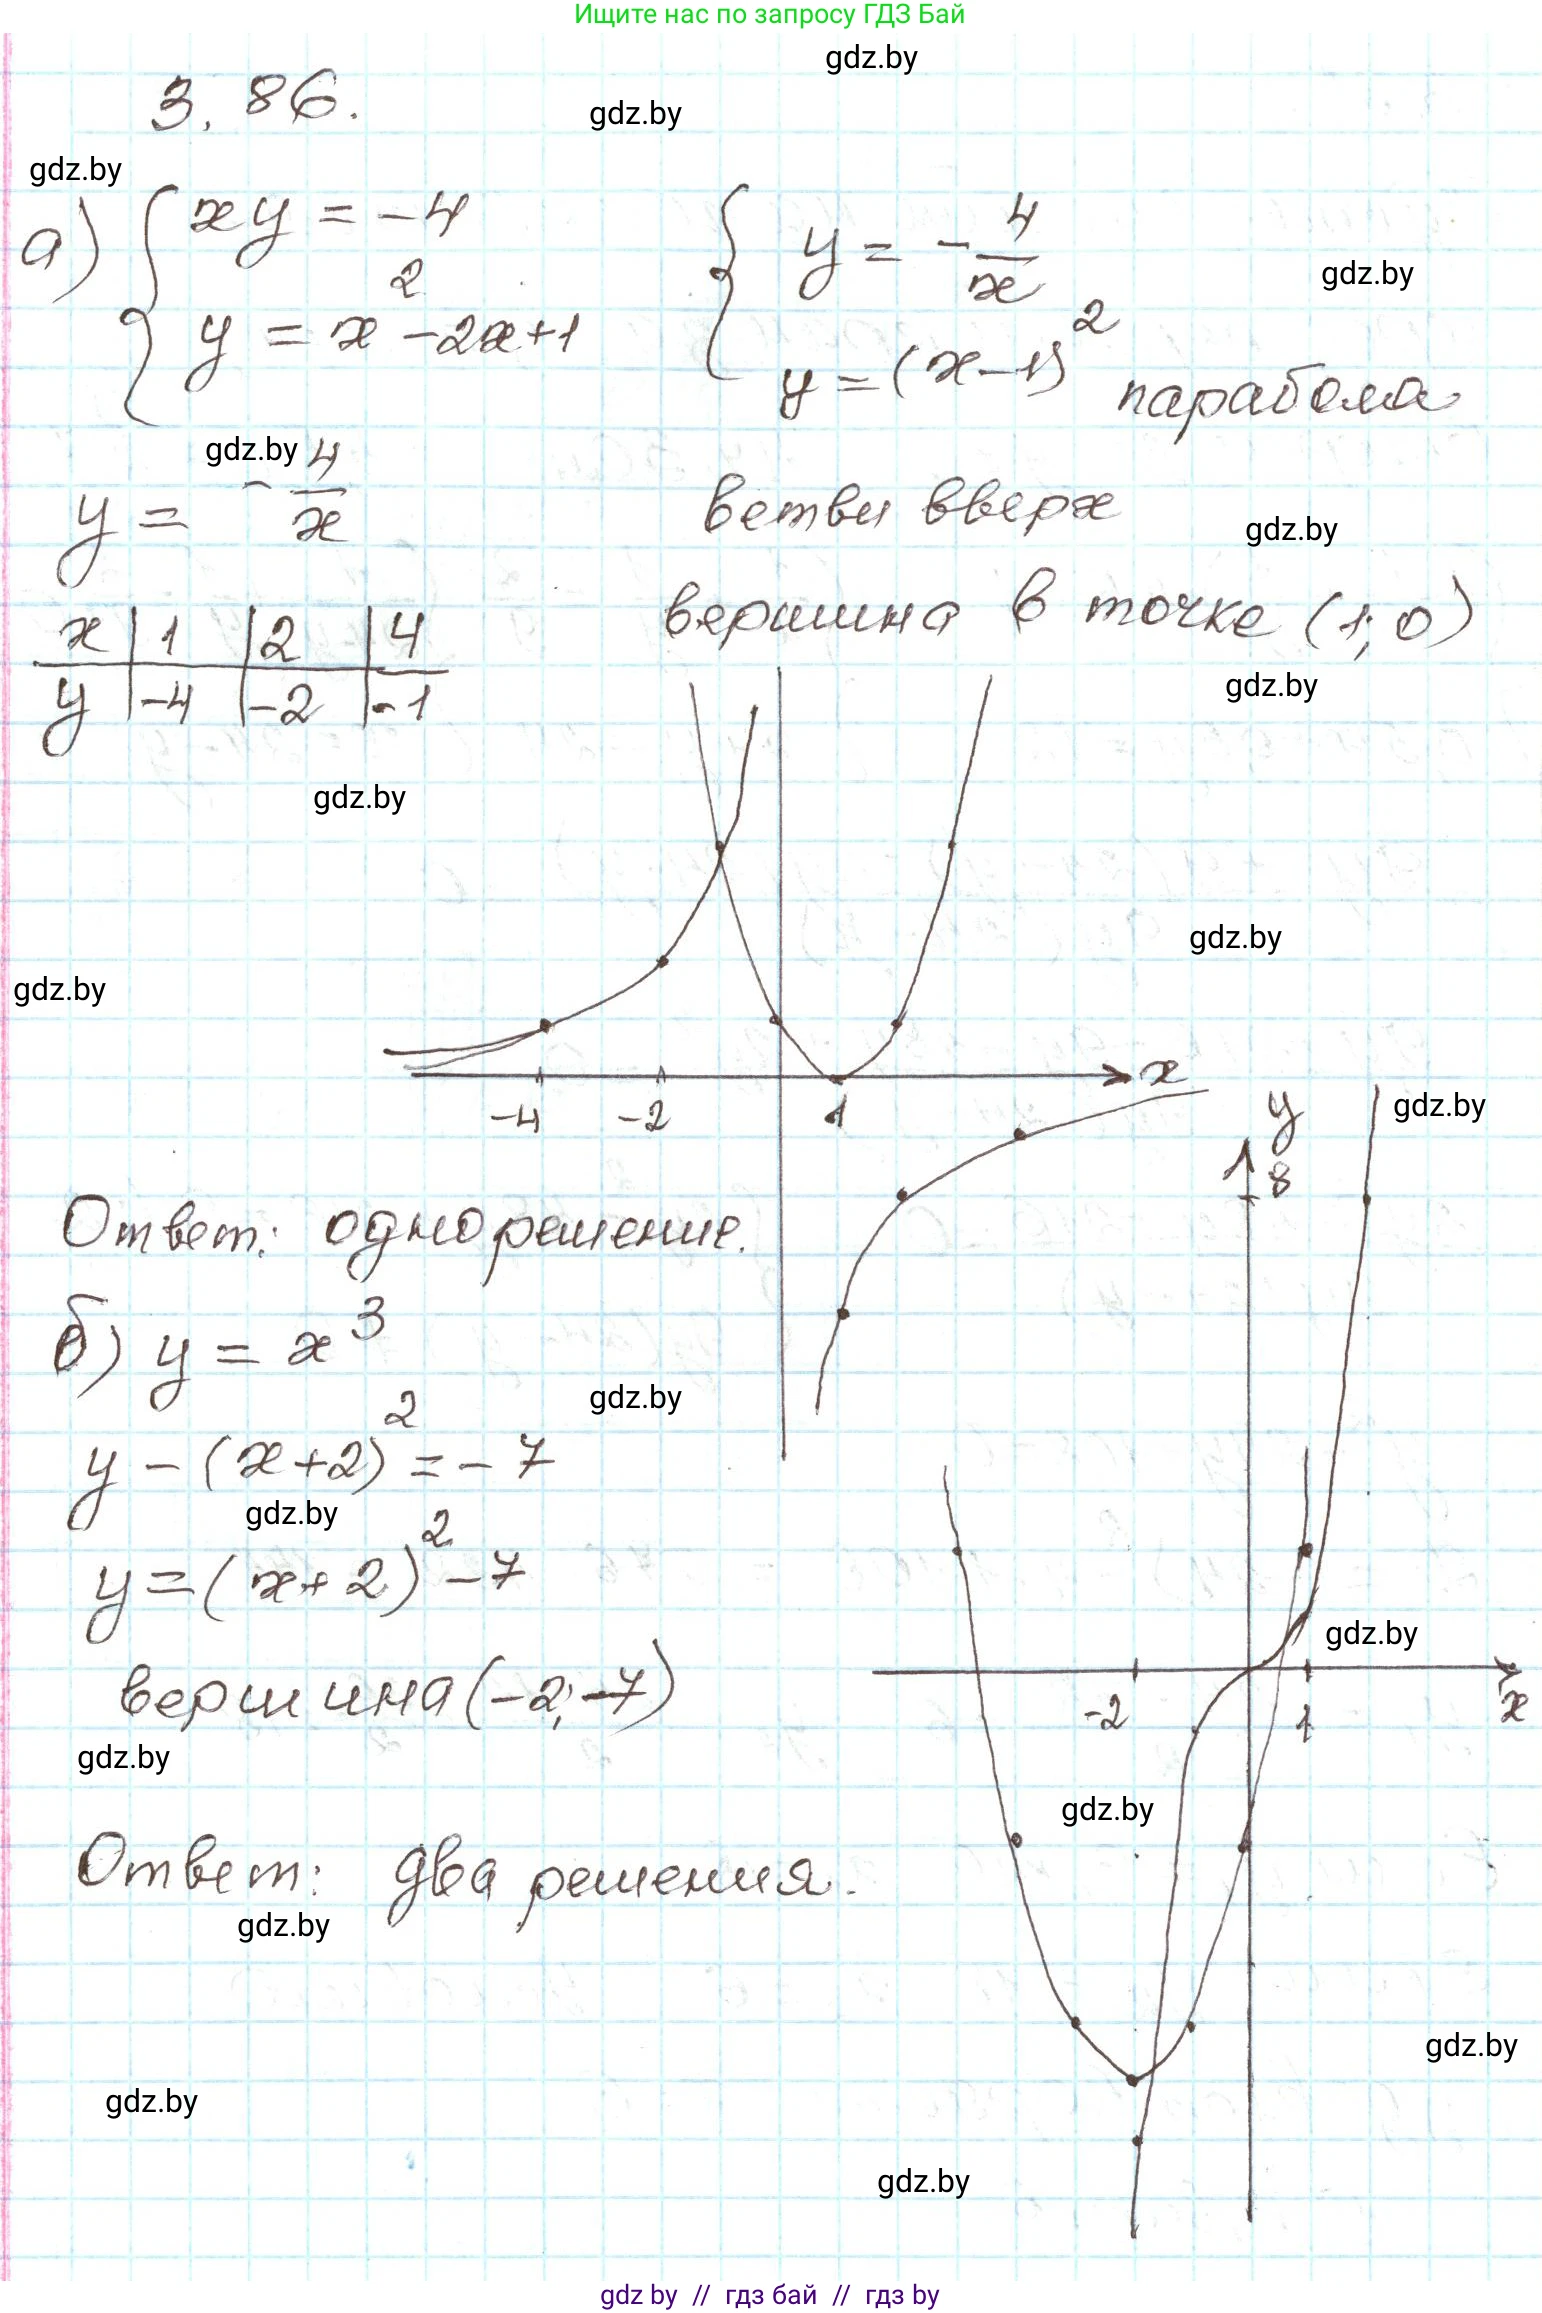 Ищите нас по запросу ГДЗ Бай
gdz.by
3.86.
gdz.by
gdz.by
а) { xy = -4
y = x² - 2x + 1
{ y = - 4/x
y = (x - 1)² парабола
gdz.by
gdz.by
y = - 4/x
ветви вверх
gdz.by
вершина в точке (1; 0)
x | 1 | 2 | 4
y | -4 | -2 | -1
gdz.by
gdz.by
gdz.by
gdz.by
x
-4 -2 1
gdz.by
Ответ: одно решение.
y
8
б) y = x³
gdz.by
y - (x + 2)² = - 7
gdz.by
y = (x + 2)² - 7
gdz.by
вершина (-2; -7)
-2 1 x
gdz.by
gdz.by
Ответ: два решения.
gdz.by
gdz.by
gdz.by
gdz.by
gdz by // гдз бай // gdz by